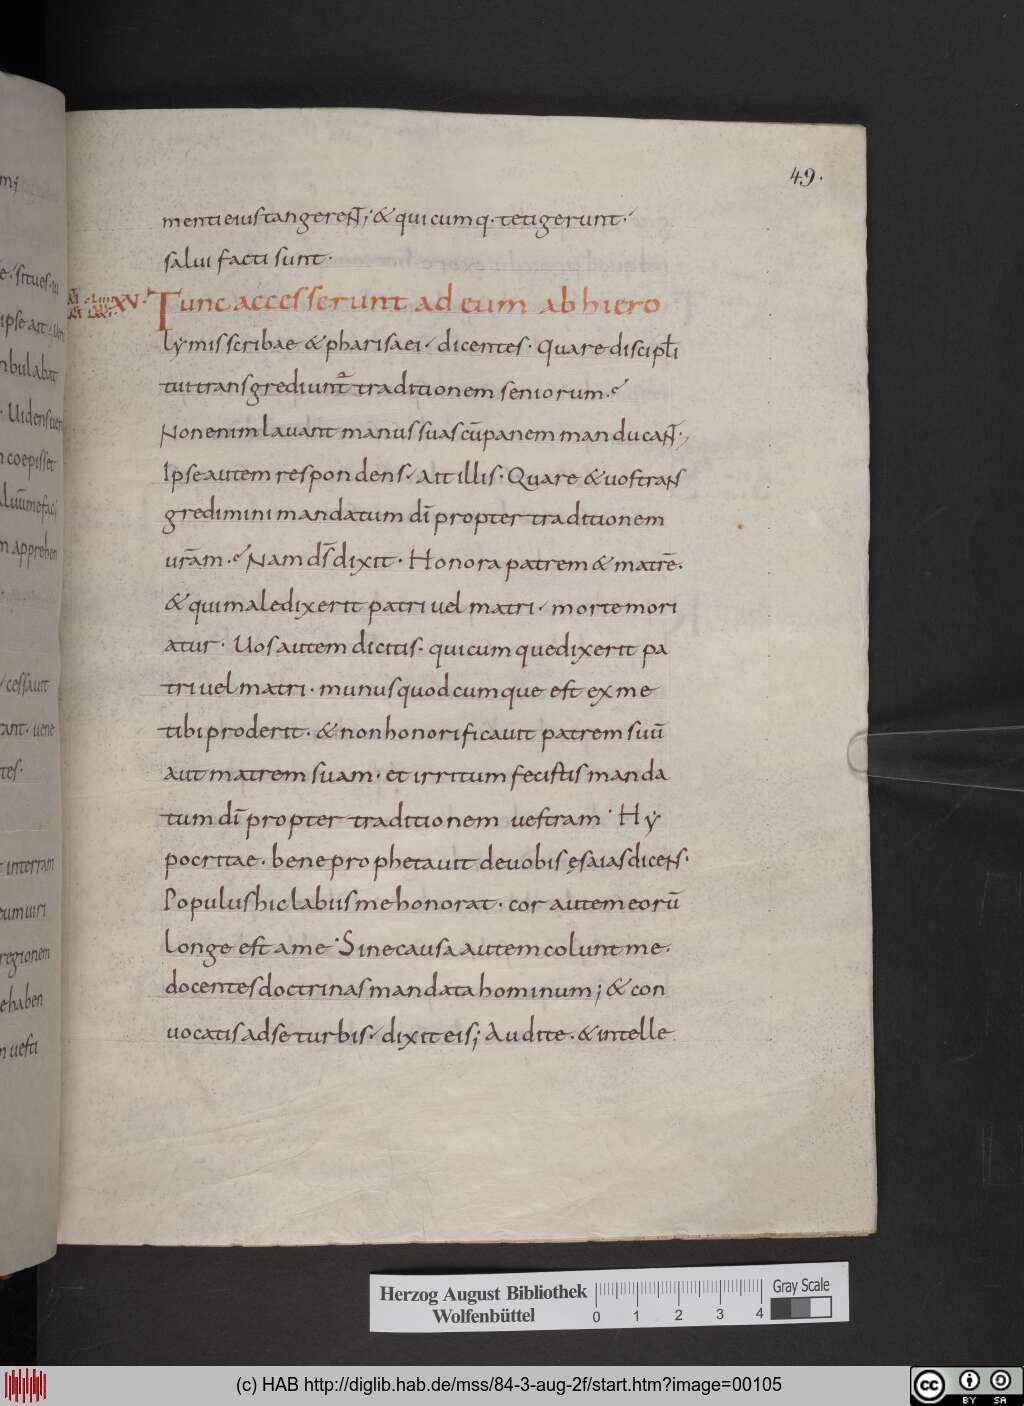 49.
menti eius tangereñt; & quicumq· tetigerunt·
salui facti sunt·
XV· Tunc accesserunt ad eum ab hiero
lẏmis scribae & pharisaei· dicentes· Quare discipłi
tui transgrediunt̄ traditionem seniorum·
Non enim lauant manus suas cū panem manducant·
Ipse autem respondens· ait illis· Quare & uos trans
gredimini mandatum dī propter traditionem
urām· Nam ds̄ dixit· Honora patrem & matrē·
& qui maledixerit patri uel matri· morte mori
atur· Uos autem dicitis· quicumque dixerit pa
tri uel matri· munus quodcumque est ex me
tibi proderit· & non honorificauit patrem suū
aut matrem suam· et irritum fecistis manda
tum dī propter traditionem uestram· Hẏ
pocritae· bene prophetauit de uobis ęsaias dicens·
Populus hic labiis me honorat· cor autem eorū
longe est a me· Sine causa autem colunt me·
docentes doctrinas mandata hominum; & con
uocatis ad se turbis· dixit eis; Audite· & intelle
Herzog August Bibliothek
Wolfenbüttel
0 1 2 3 4
Gray Scale
(c) HAB http://diglib.hab.de/mss/84-3-aug-2f/start.htm?image=00105
cc BY SA